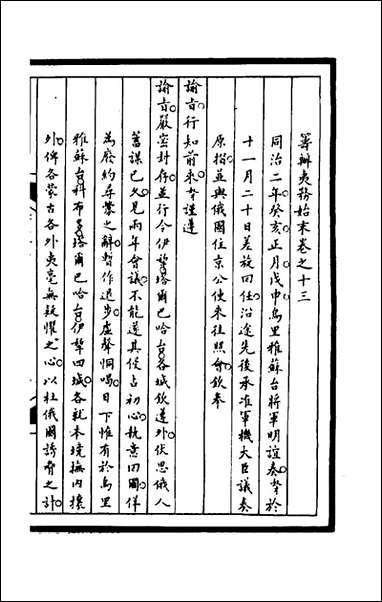 籌辦夷務始末卷之十三
同治二年癸亥正月戊申烏里雅蘇台將軍明誼奏奴才於
十一月二十日差旋回任沿途先後承准軍機大臣議奏
原摺並與俄國住京公使來往照會欽奉
諭旨行知前來謹遵
諭旨嚴密封存並行令伊犂塔爾巴哈台各城欽遵外伏思俄人
蓄謀已久見兩年會議不能遂其侵占初心執意回國佯
為廢約尋釁之辭暫作退步虛聲恫喝目下惟有於烏里
雅蘇台科布多塔爾巴哈台伊犂四城各就本境撫內攘
外俾各蒙古各外夷毫無疑懼之心以杜俄國誇脅之計